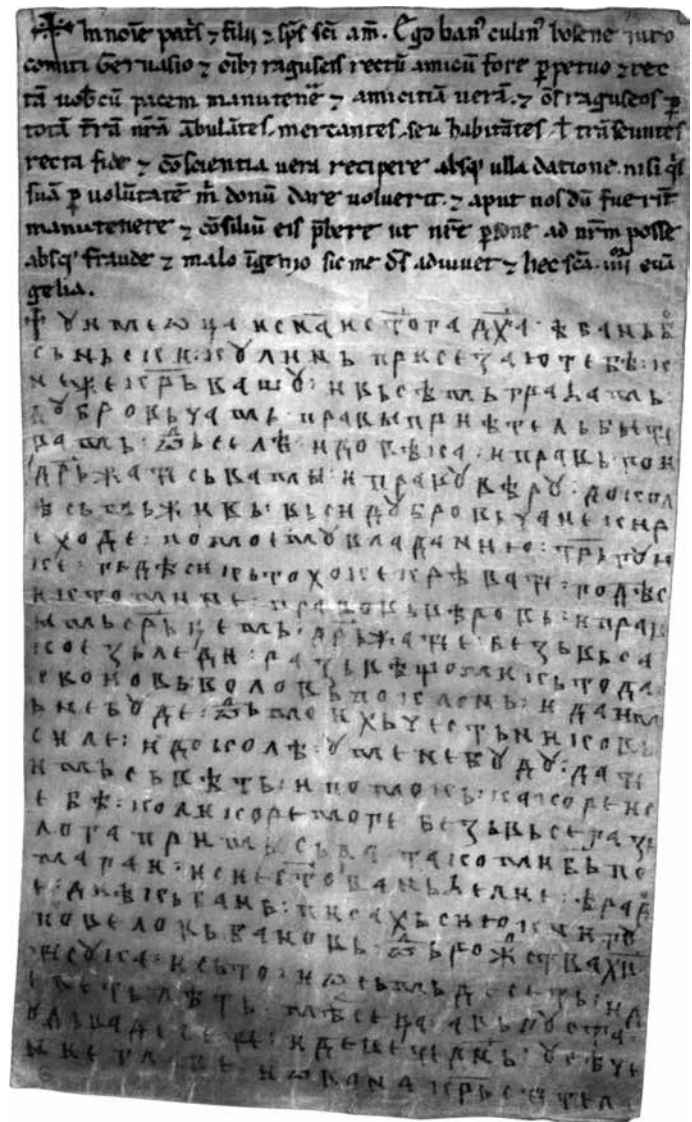 † In noīe pat̄s ⁊ filii ⁊ sp̄s sc̄i am̄. Ego ban᾿ culin᾿ bosene iuro
comiti Geruasio ⁊ om̄ibꝫ raguseis rectū amicū fore ꝑpetuo ⁊ rec
tā uobcū pacem manutene᷑ ⁊ amicitiā uerā. ⁊ om̄s raguseos ꝑ
totā t̄rā nr̄ā ābulātes. mercantes. seu habitātes. ł trāseuntes
recta fide ⁊ cōscientia uera recipere absqꝫ ulla datione. nisi q̄s
suā ꝑ uolūtatē m̄ donū dare uoluerit. ⁊ aput nos dū fuerīt
manutenere ⁊ cōsiliū eis p̄bere ut nr̄e ꝑsone ad nr̄m posse
absqꝫ fraude ⁊ malo īgenio sic me ds̄ adiuuet ⁊ hec sc̄a. iiii euā
gelia.
† ꙋ име ѡца и сн҃а и ст҃ога дх҃а· ѣ бань б҃о
сьньски: кꙋлинь присезаю тебѣ: к
неже кр҃ьвашꙋ: и вьсѣмь граꙉамь·
дꙋбровьчамь· правы приѣтель быти
вамь: ѿь селѣ: и довѣка· и правь гои
дрьжати сь вамы: и правꙋ вѣрꙋ: докол
ѣ сьмь живь: вьси дꙋбровьчане кир
е ходе: по моемꙋ владанию: трьгꙋю
ке: гьдѣ си кьто хоке крѣвати: годѣ с
и кто мине· правовь вѣровь: и прав
имь ср҃ьцемь: дрьжати е: безь вьса
кое зьледи: разьвѣ що ми кьто да·
своиовь воловь поклонь: и да им
ь не бꙋде: ѿь моихь чьстьниковь
силе: и доколѣ: ꙋ мене бꙋдꙋ: дати
имь сьвѣть: и помокь: какоре и с
ебѣ: коликоре моге безь вьсега зь
лога примысьла· тако ми б҃ь по
магаи: и сие ст҃о еваньꙉелие: ѣ рад҃о
е: диѣкь бань: писахь сию книгꙋ
повеловь бановь: ѿь рожства х҃ва·
тисꙋка: и сьто: и ѡсьмьдесеть: и д
еветь лѣть: мѣсеца: авьгꙋста·
ꙋ дьвадесети: и деветы д҃нь: ꙋсѣче
ние главе иѡвана крьстителѣ